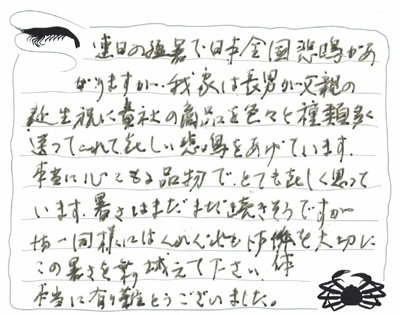 連日の猛暑で日本全国悲鳴があ
がりますが、我家は長男が父親の
誕生祝に貴社の商品を色々と種類多く
送ってくれて、嬉しい悲鳴をあげています。
本当に心こもる品物で、とても嬉しく思って
います。暑さはまだまだ続きそうですが
皆一同様にはくれぐれもお体を大切に
この暑さを乗り越えて下さい
本当に有り難とうございました。